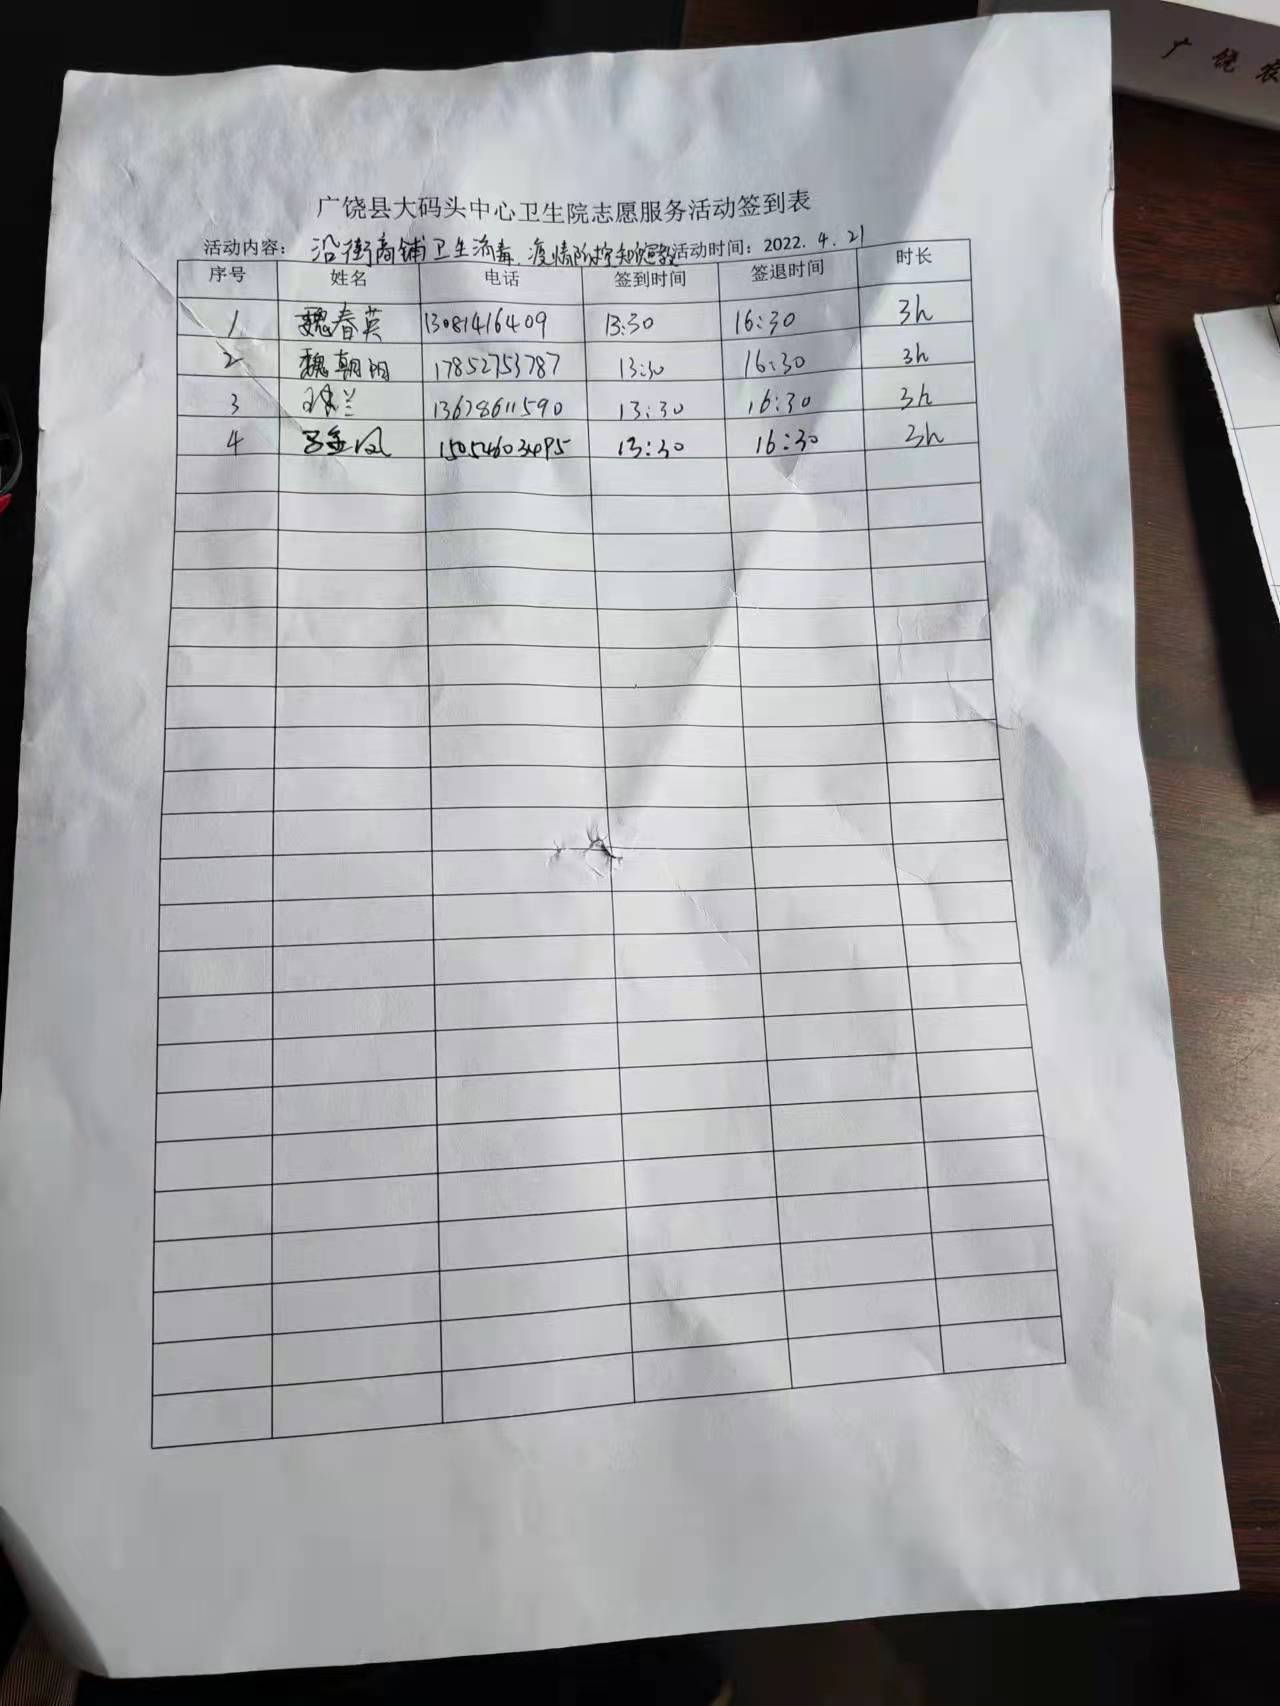 广饶农
广饶县大码头中心卫生院志愿服务活动签到表
活动内容: 沿街商铺卫生消毒、疫情防控知识宣教 活动时间: 2022.4.21
序号 姓名 电话 签到时间 签退时间 时长
1 魏春英 13081416409 13:30 16:30 3h
2 魏朝阳 17852753787 13:30 16:30 3h
3 兰 13678611590 13:30 16:30 3h
4 金凤 15054603495 13:30 16:30 3h